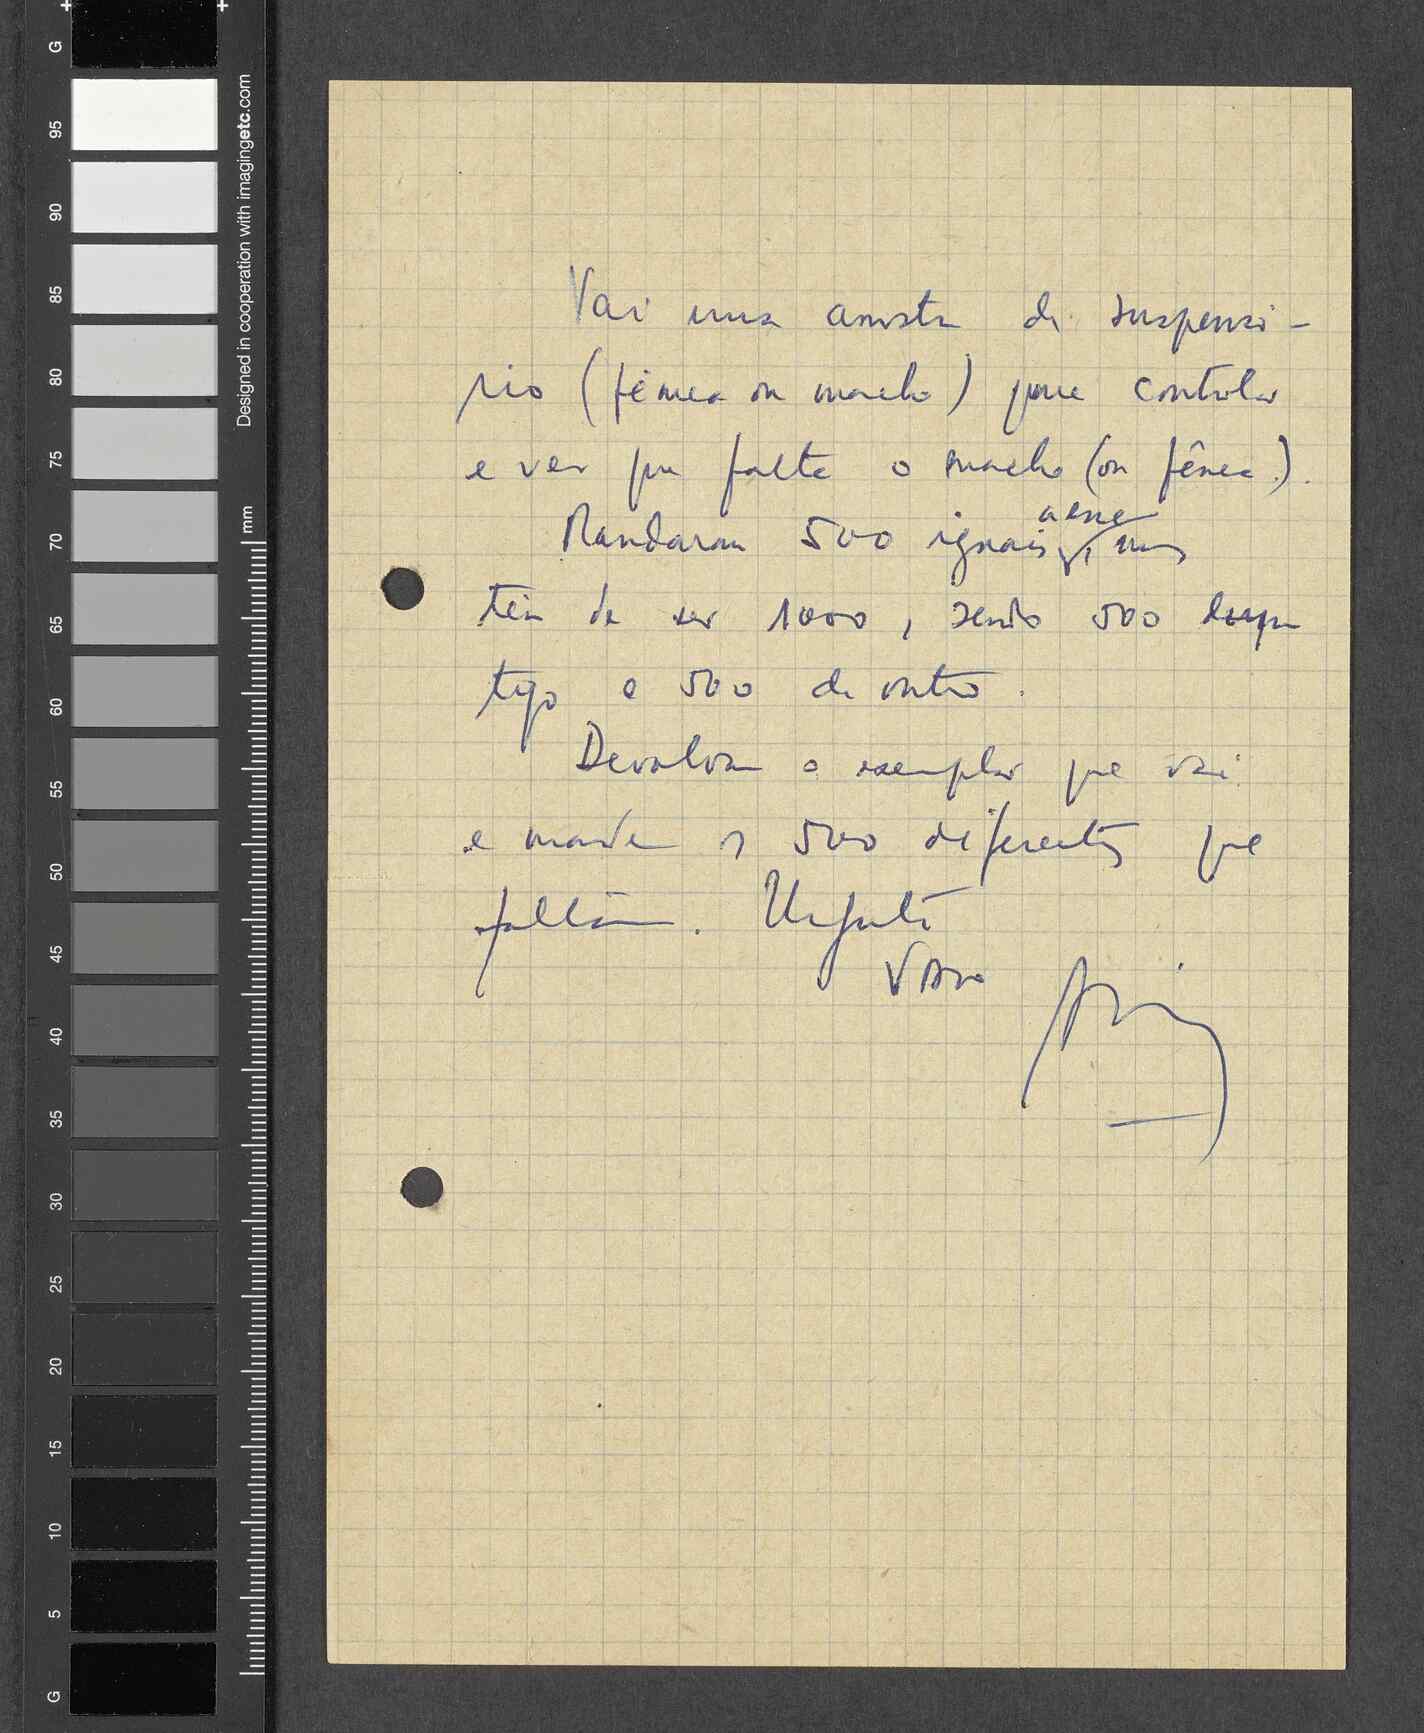 Vai uma amostra de suspensó-
rio (fêmea ou macho) para controlar
e ver que falta o macho (ou fêmea).
Mandaram 500 iguais a esse, mas
têm de ser 1000, sendo 500 desse
tipo e 500 de outro.
Devolvam o exemplar que vai
e mandem os 500 diferentes que
faltam. Urgente
G
95
90
85
80
75
70
65
60
55
50
45
40
35
30
25
20
15
10
5
G
Designed in cooperation with imagingetc.com
mm